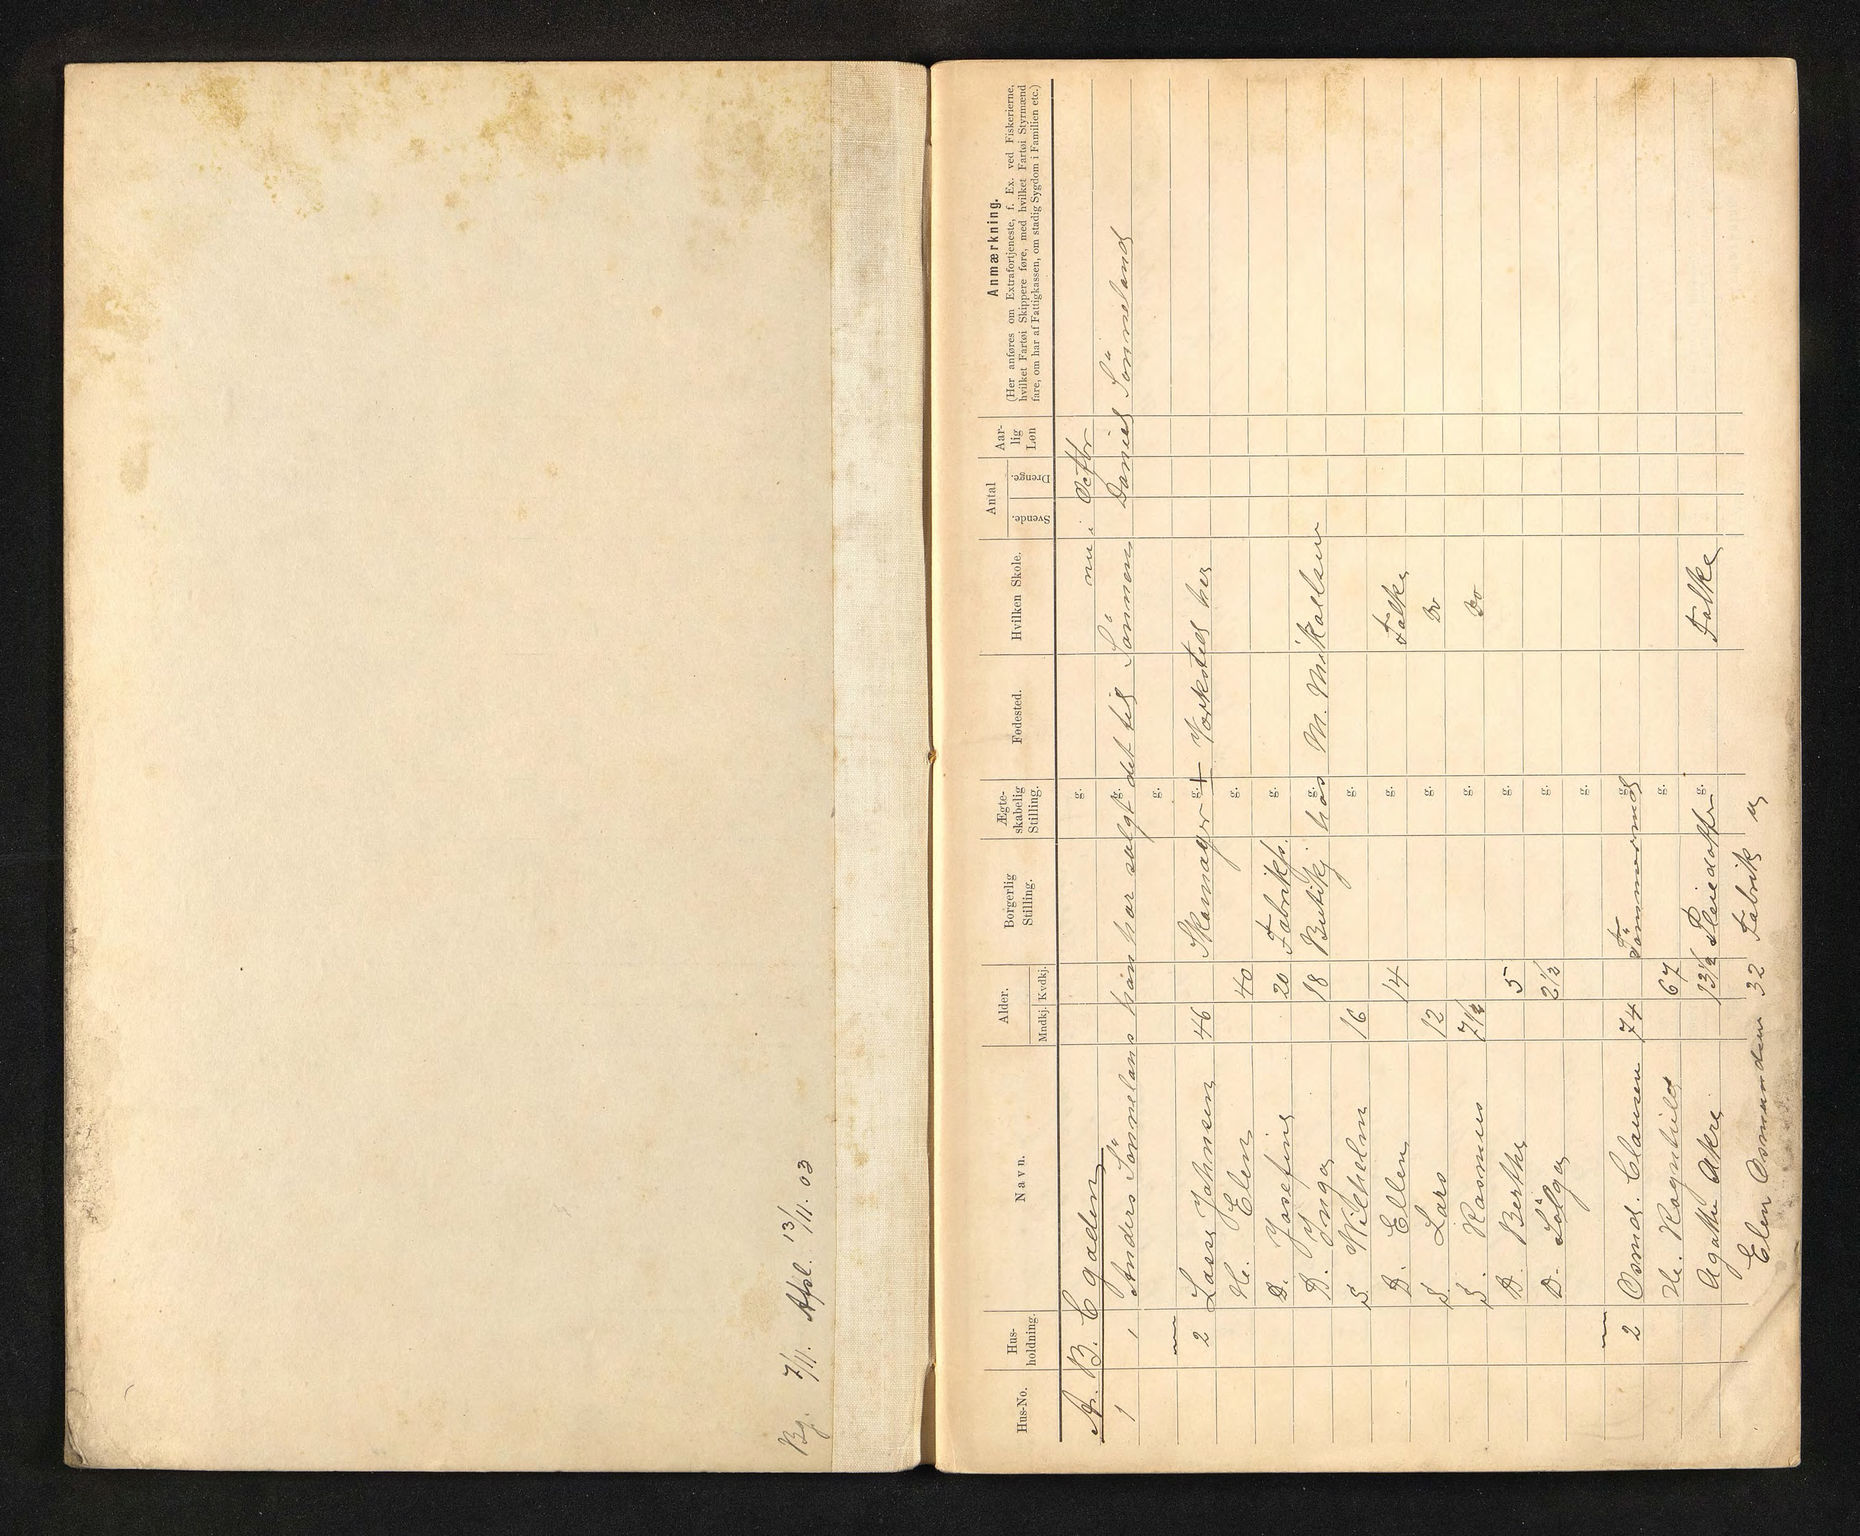 Bg. 7/11. Afsl. 13/11. 03
Hus-No.
Hus-
holdning.
Navn.
Alder.
Mndkj. Kvdkj.
Borgerlig
Stilling.
Ægte-
skabelig
Stilling.
Fødested.
Hvilken Skole.
Antal
Svende. Drenge.
Aar-
lig
Løn
Anmærkning.
(Her anføres om Extrafortjeneste, f. Ex. ved Fiskerierne,
hvilket Fartøi Skippere føre, med hvilket Fartøi Styrmænd
fare, om har af Fattigkassen, om stadig Sygdom i Familien etc.)
A. B. C gaden g. nu i Octbr
1 1 Anders Sömmeland han har solgt det til Sönnen Daniel Sömmeland
g.
2 Lasse Johnsen 46 Skomager g. + Værksted her
He. Elen 40 g.
D. Josefine 20 Fabrikp. g.
D. Inga 18 Butikj hos M. Mikaelsen
S. Wilhelm 16 g.
D. Ellen 14 g. Folke
S. Lars 12 g. Do
S. Rasmus 7½ g. Do
D. Berthe 5 g.
D. Solga 2½ g.
g.
2 Osmd. Clausen 74 Tömmermd g.
He. Ragnhild 67 g.
Agathe Akre 13½ Pleiedatter g. Folke
Elen Osmundsen 32 Fabrik g